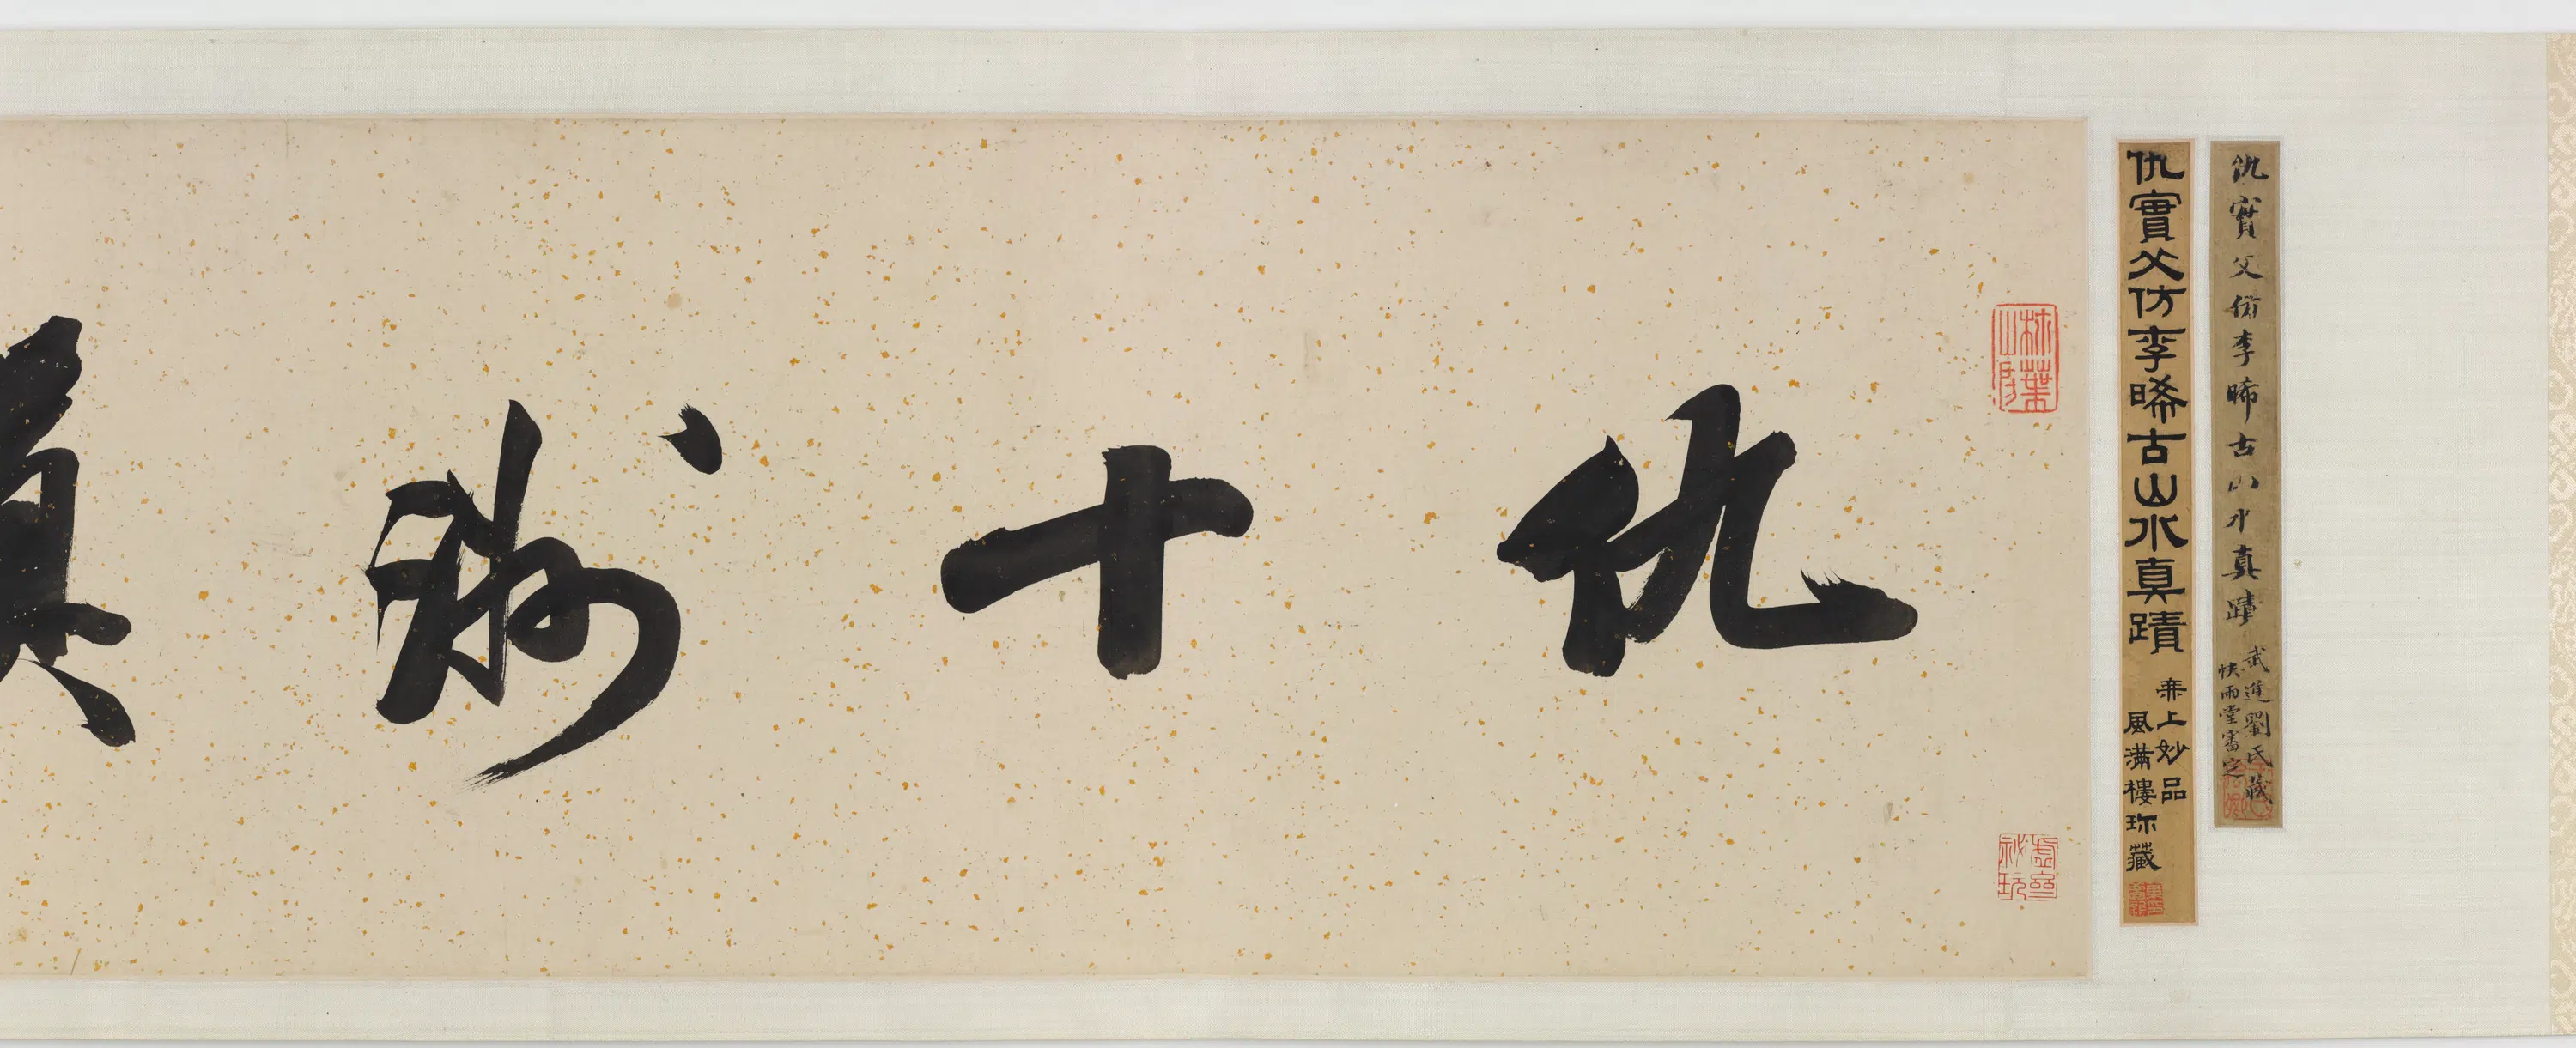 仇實父仿李晞古山水真蹟
武進劉氏藏
快雨堂審定
仇實父仿李晞古山水真蹟
無上妙品
風滿樓珎藏
秫葉山房
虛齋秘玩
仇十洲真